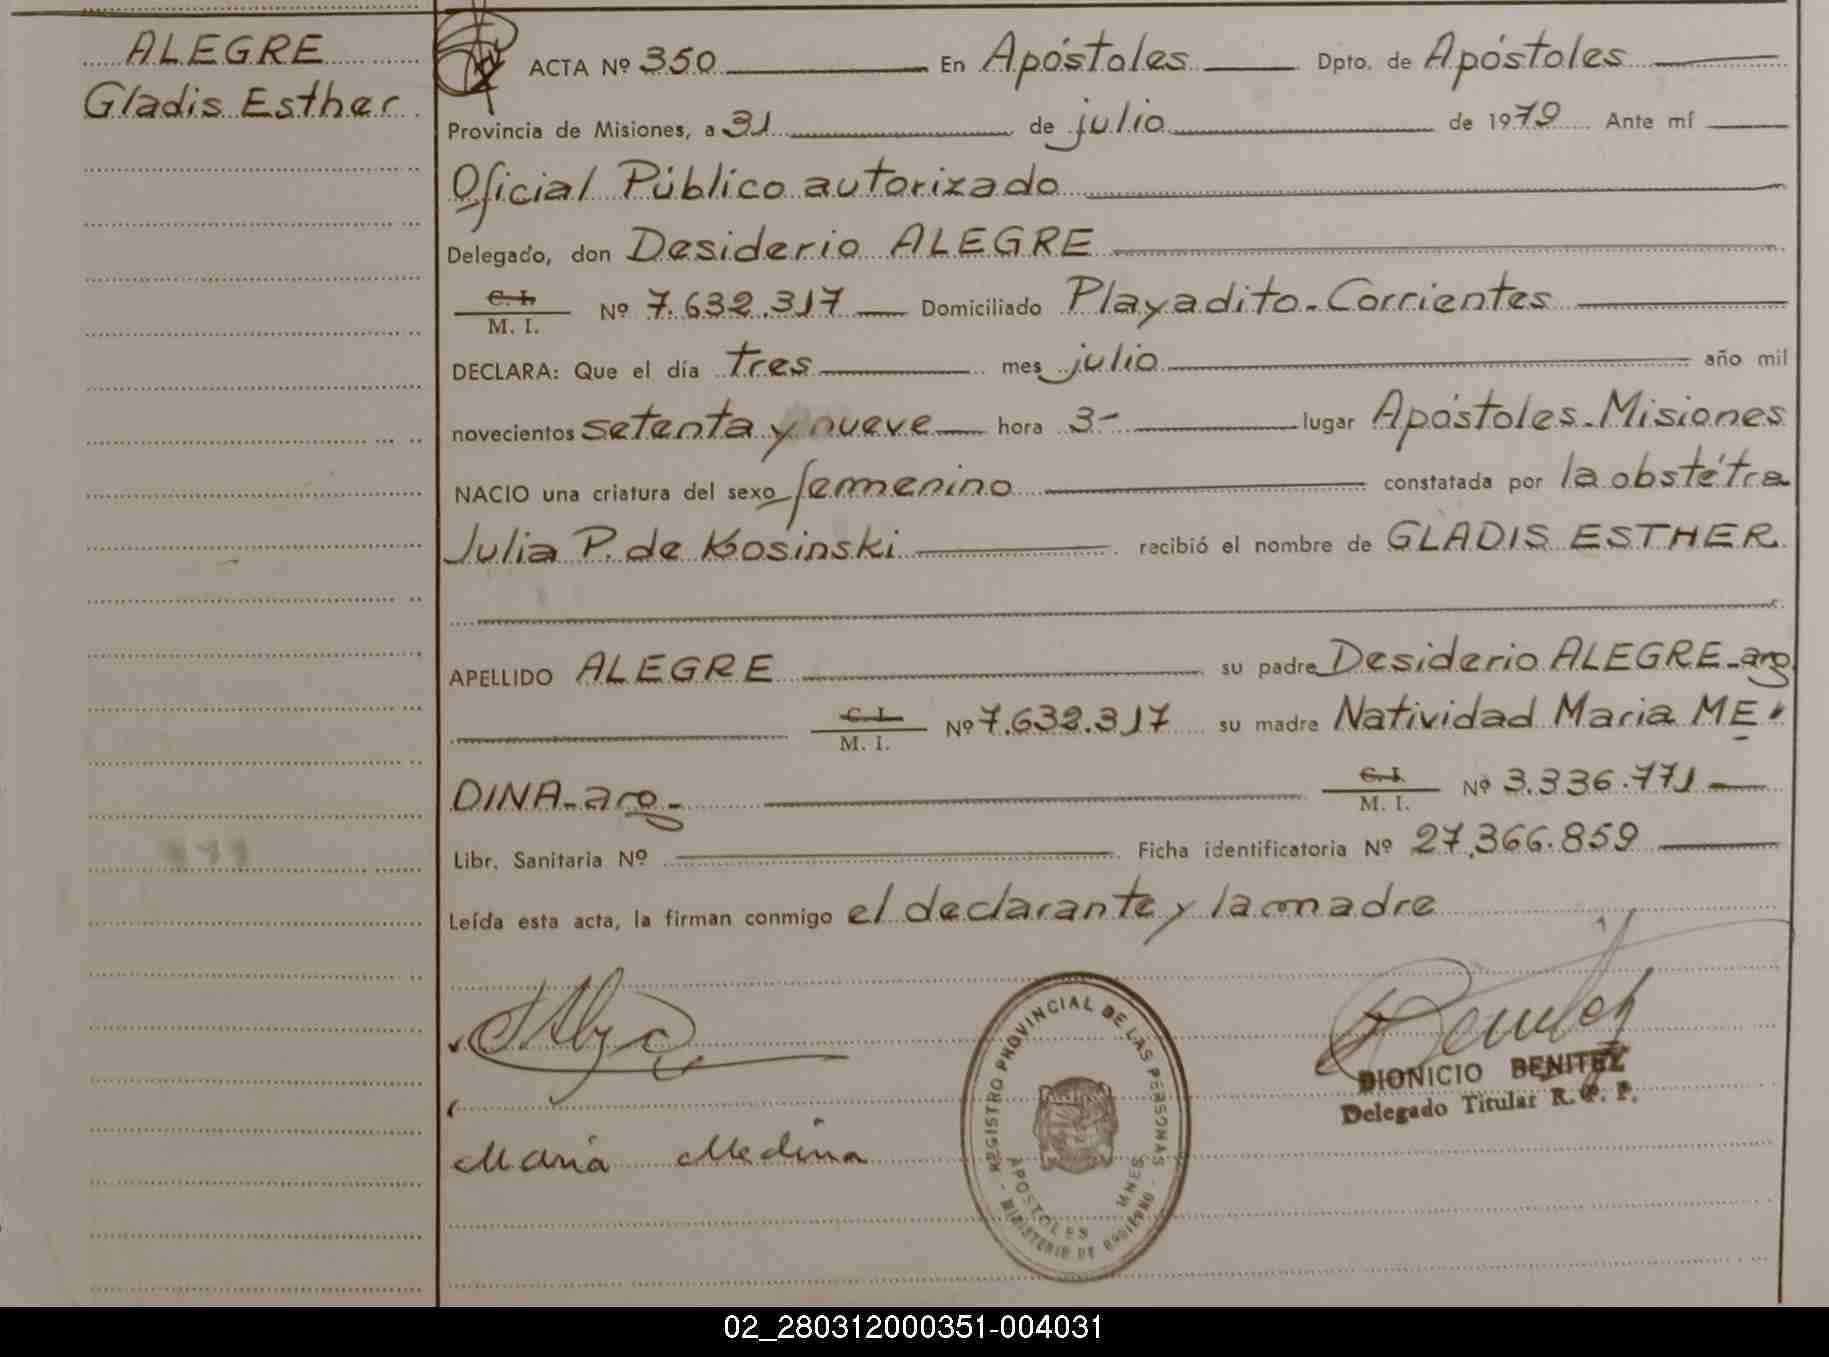 ALEGRE
Gladis Esther
ACTA Nº 350 En Apóstoles Dpto. de Apóstoles
Provincia de Misiones, a 31 de julio de 1979 Ante mí
Oficial Público autorizado
Delegado, don Desiderio ALEGRE
C. I.
M. I. Nº 7.632.317 Domiciliado Playadito-Corrientes
DECLARA: Que el día tres mes julio año mil
novecientos setenta y nueve hora 3- lugar Apóstoles-Misiones
NACIO una criatura del sexo femenino constatada por la obstétra
Julia P. de Kosinski recibió el nombre de GLADIS ESTHER
APELLIDO ALEGRE su padre Desiderio ALEGRE-arg.
C. I.
M. I. Nº 7.632.317 su madre Natividad Maria ME-
DINA-arg- C. I.
M. I. Nº 3.336.771
Libr. Sanitaria Nº Ficha identificatoria Nº 27.366.859
Leída esta acta, la firman conmigo el declarante y la madre
REGISTRO PROVINCIAL DE LAS PERSONAS
APOSTOLES MNES
- MINISTERIO DE GOBIERNO -
DIONICIO BENITEZ
Delegado Titular R. P. P.
Maria Medina
02_280312000351-004031